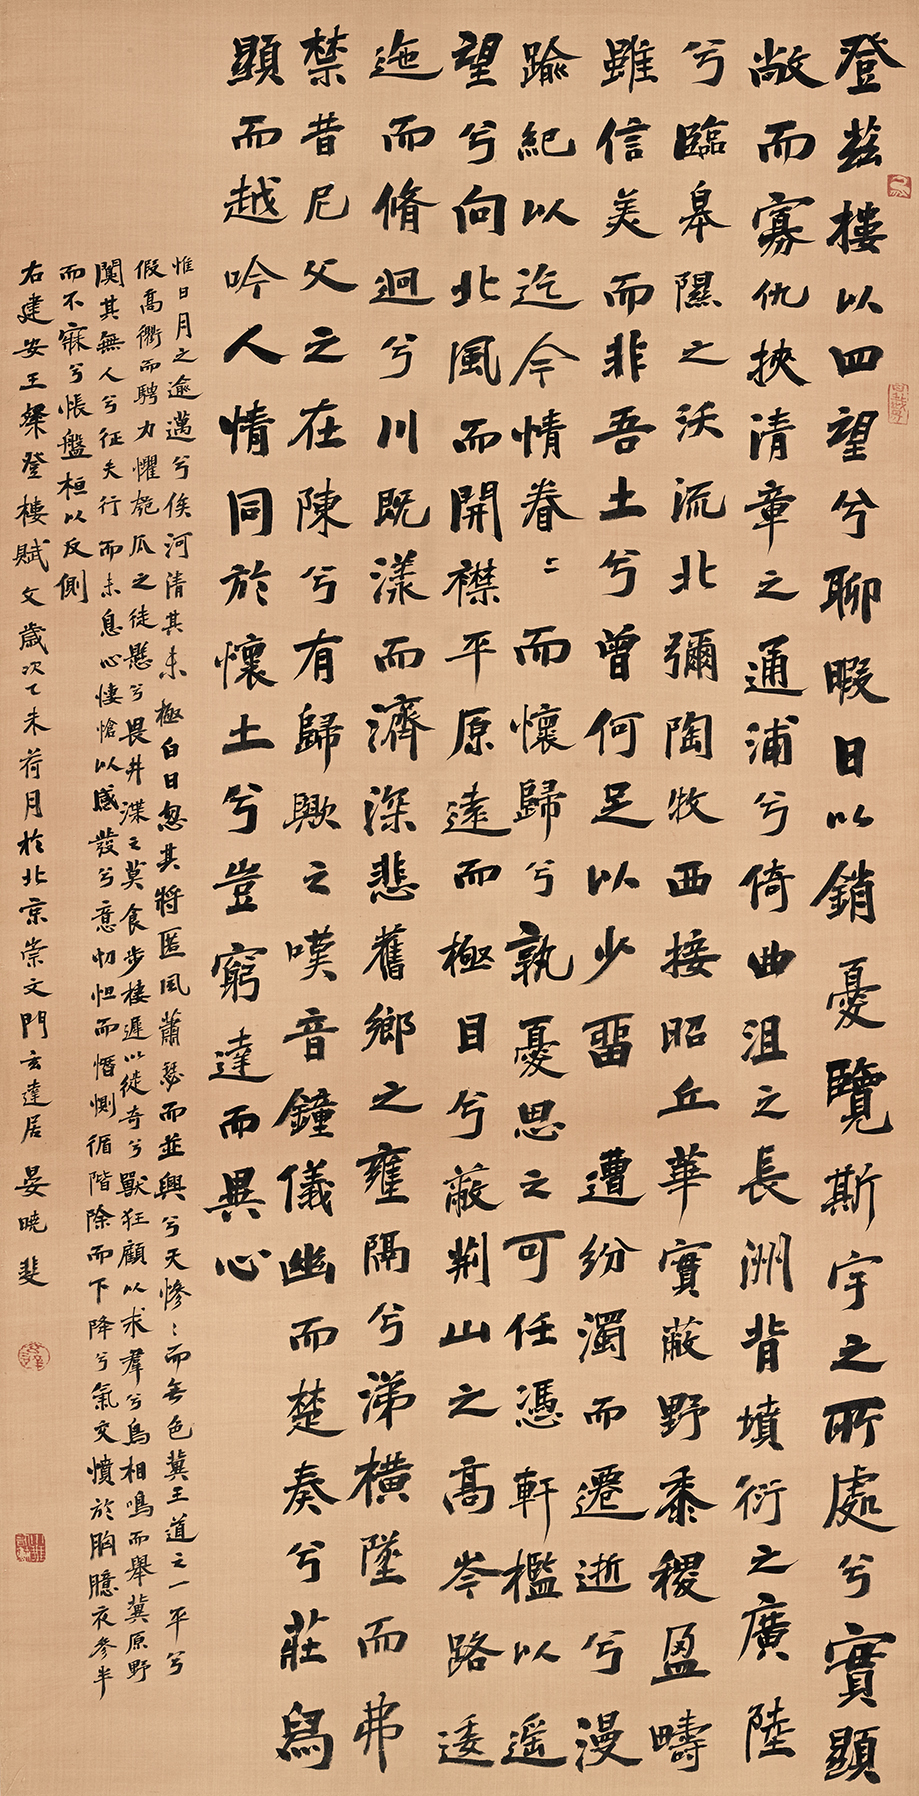 登茲樓以四望兮聊暇日以銷憂覽斯宇之所處兮實顯
敞而寡仇挾清章之通浦兮倚曲沮之長洲背墳衍之廣陸
兮臨皋隰之沃流北彌陶牧西接昭丘華實蔽野黍稷盈疇
雖信美而非吾土兮曾何足以少畱遭紛濁而遷逝兮漫
踰紀以迄今情眷〻而懷歸兮孰憂思之可任憑軒檻以遥
望兮向北風而開襟平原遠而極目兮蔽荆山之高岑路逶
迤而脩迥兮川既漾而濟深悲舊鄉之壅隔兮涕橫墜而弗
禁昔尼父之在陳兮有歸歟之嘆音鐘儀幽而楚奏兮莊舄
顯而越吟人情同於懷土兮豈窮達而異心
惟日月之逾邁兮俟河清其未極白日忽其將匿風蕭瑟而並興兮天慘〻而無色冀王道之一平兮
假高衢而騁力懼匏瓜之徒懸兮畏井渫之莫食步棲遲以徙奇兮獸狂顧以求羣兮鳥相鳴而舉冀原野
闃其無人兮征夫行而未息心悽愴以感發兮意忉怛而憯惻循階除而下降兮氣交憤於胸臆夜參半
而不寐兮悵盤桓以反側
右建安王粲登樓賦文歲次乙未荷月於北京崇文門玄達居晏曉斐